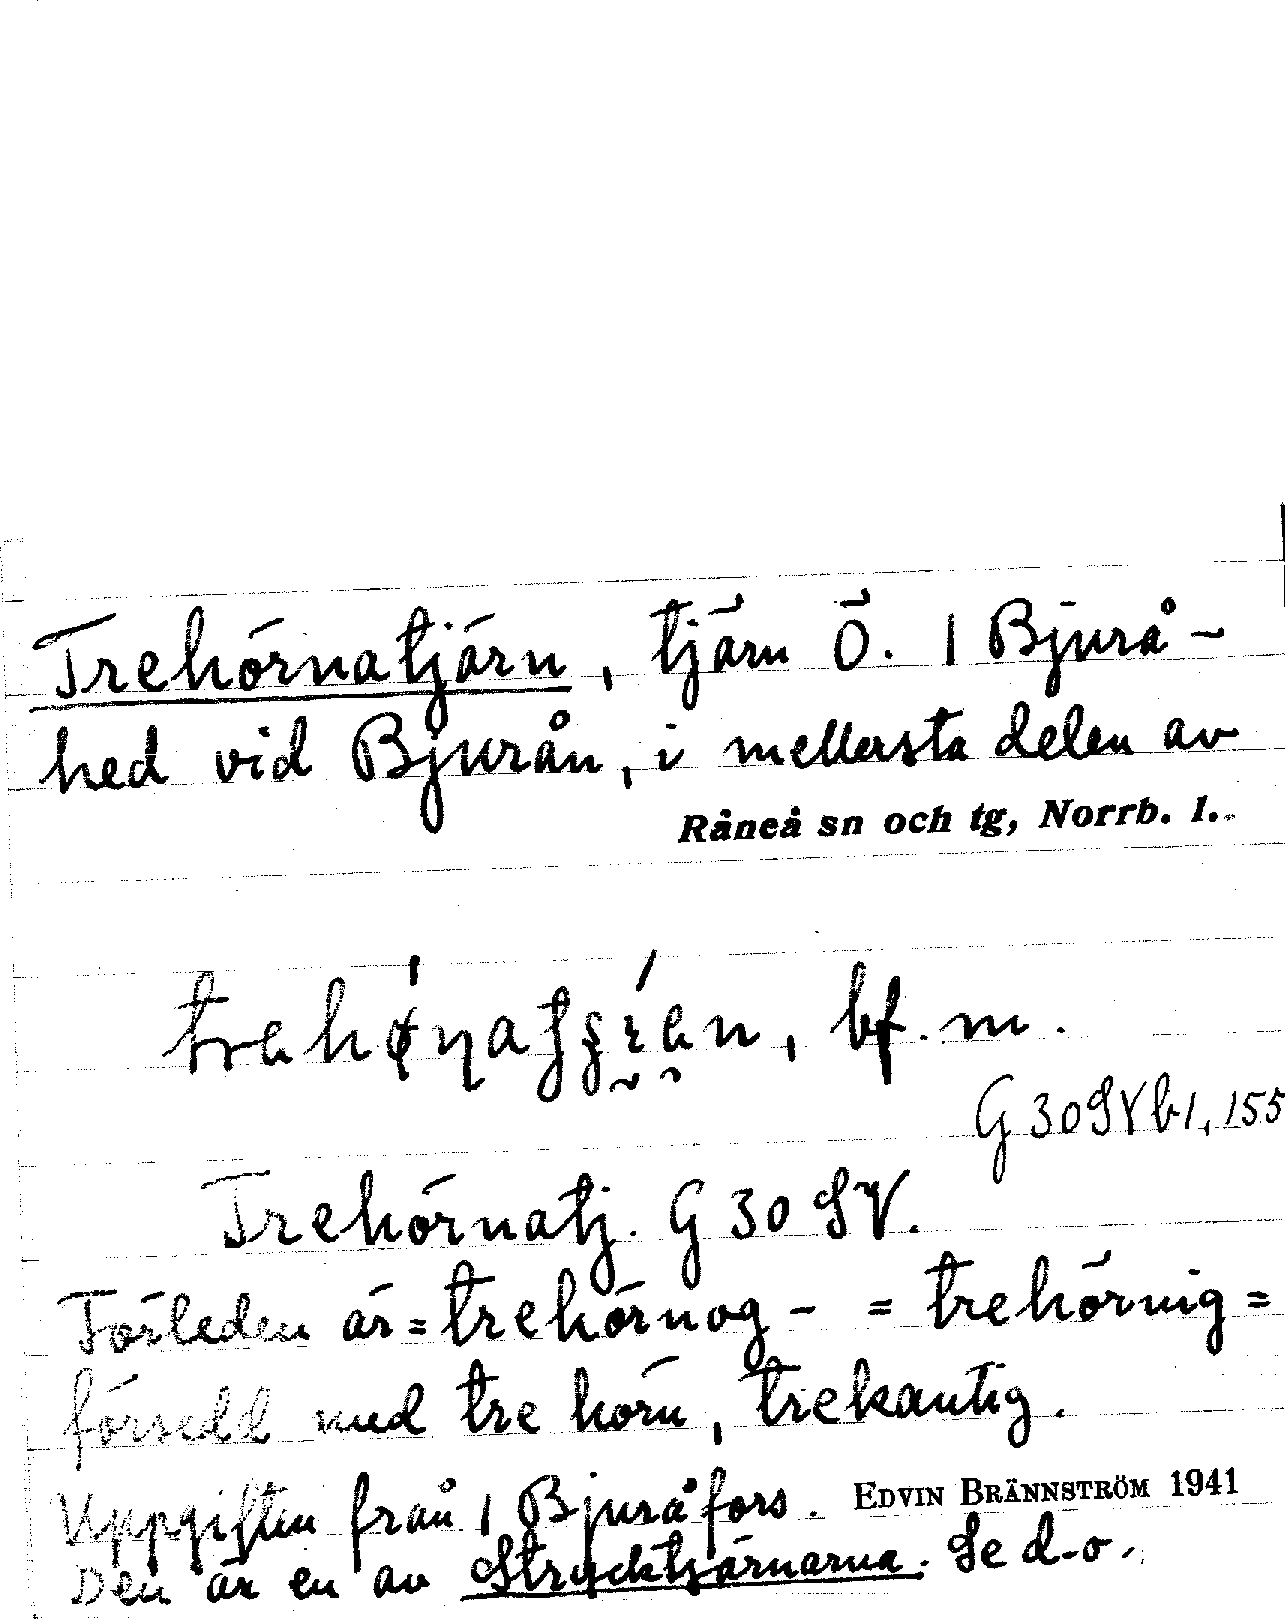 Trehörnatjärn, tjärn Ö. 1 Bjurå-
hed vid Bjurån, i mellersta delen av
Råneå sn och tg, Norrb. l.
bf. m.
G 30 SV b 1, 155
Trehörnatj. G 30 SV.
Förleden är = trehörnog- = trehörnig =
försedd med tre hörn, trekantig.
Uppgiften från 1 Bjuråfors. EDVIN BRÄNNSTRÖM 1941
Den är en av Strycktjärnarna. Se d-o.